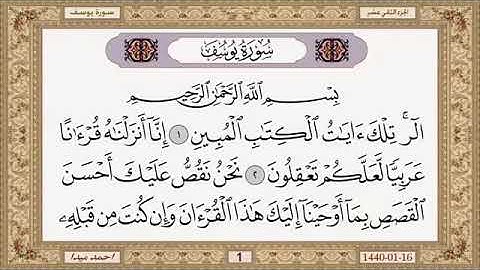 سورة يوسف
الجزء الثاني عشر
سُورَةُ يُوسُفَ
بِسْمِ اللَّهِ الرَّحْمَٰنِ الرَّحِيمِ
الٓر ۚ تِلْكَ ءَايَٰتُ ٱلْكِتَٰبِ ٱلْمُبِينِ ١ إِنَّآ أَنزَلْنَٰهُ قُرْءَٰنًا
عَرَبِيًّا لَّعَلَّكُمْ تَعْقِلُونَ ٢ نَحْنُ نَقُصُّ عَلَيْكَ أَحْسَنَ
ٱلْقَصَصِ بِمَآ أَوْحَيْنَآ إِلَيْكَ هَٰذَا ٱلْقُرْءَانَ وَإِن كُنتَ مِن قَبْلِهِۦ
1440-01-16
1